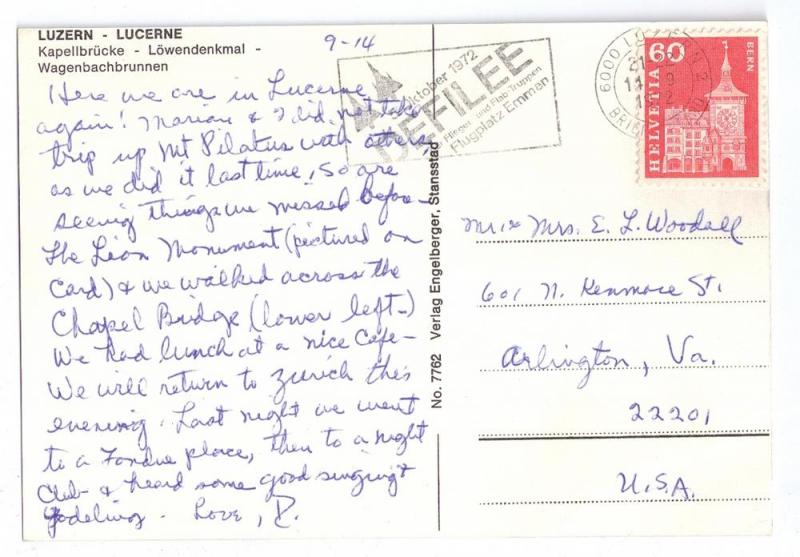 LUZERN - LUCERNE
Kapellbrücke - Löwendenkmal -
Wagenbachbrunnen
9-14
Here we are in Lucerne
again! Marian & I did not take
trip up Mt Pilatus with others
as we did it last time, so are
seeing things we missed before -
The Lion Monument (pictured on
Card) & we walked across the
Chapel Bridge (lower left-)
We had lunch at a nice Cafe -
We will return to Zurich this
evening. Last night we went
to a Fondue place, then to a night
Club - & heard some good singing &
yodeling - Love, D.
No. 7762 Verlag Engelberger, Stansstad
Oktober 1972
DEFILEE
Flieger- und Flab-Truppen
Flugplatz Emmen
6000 LUZERN 2
BRIEF
60
HELVETIA
BERN
Mr. & Mrs. E. L. Woodall
601 N. Kenmore St.
Arlington, Va.
22201
U.S.A.